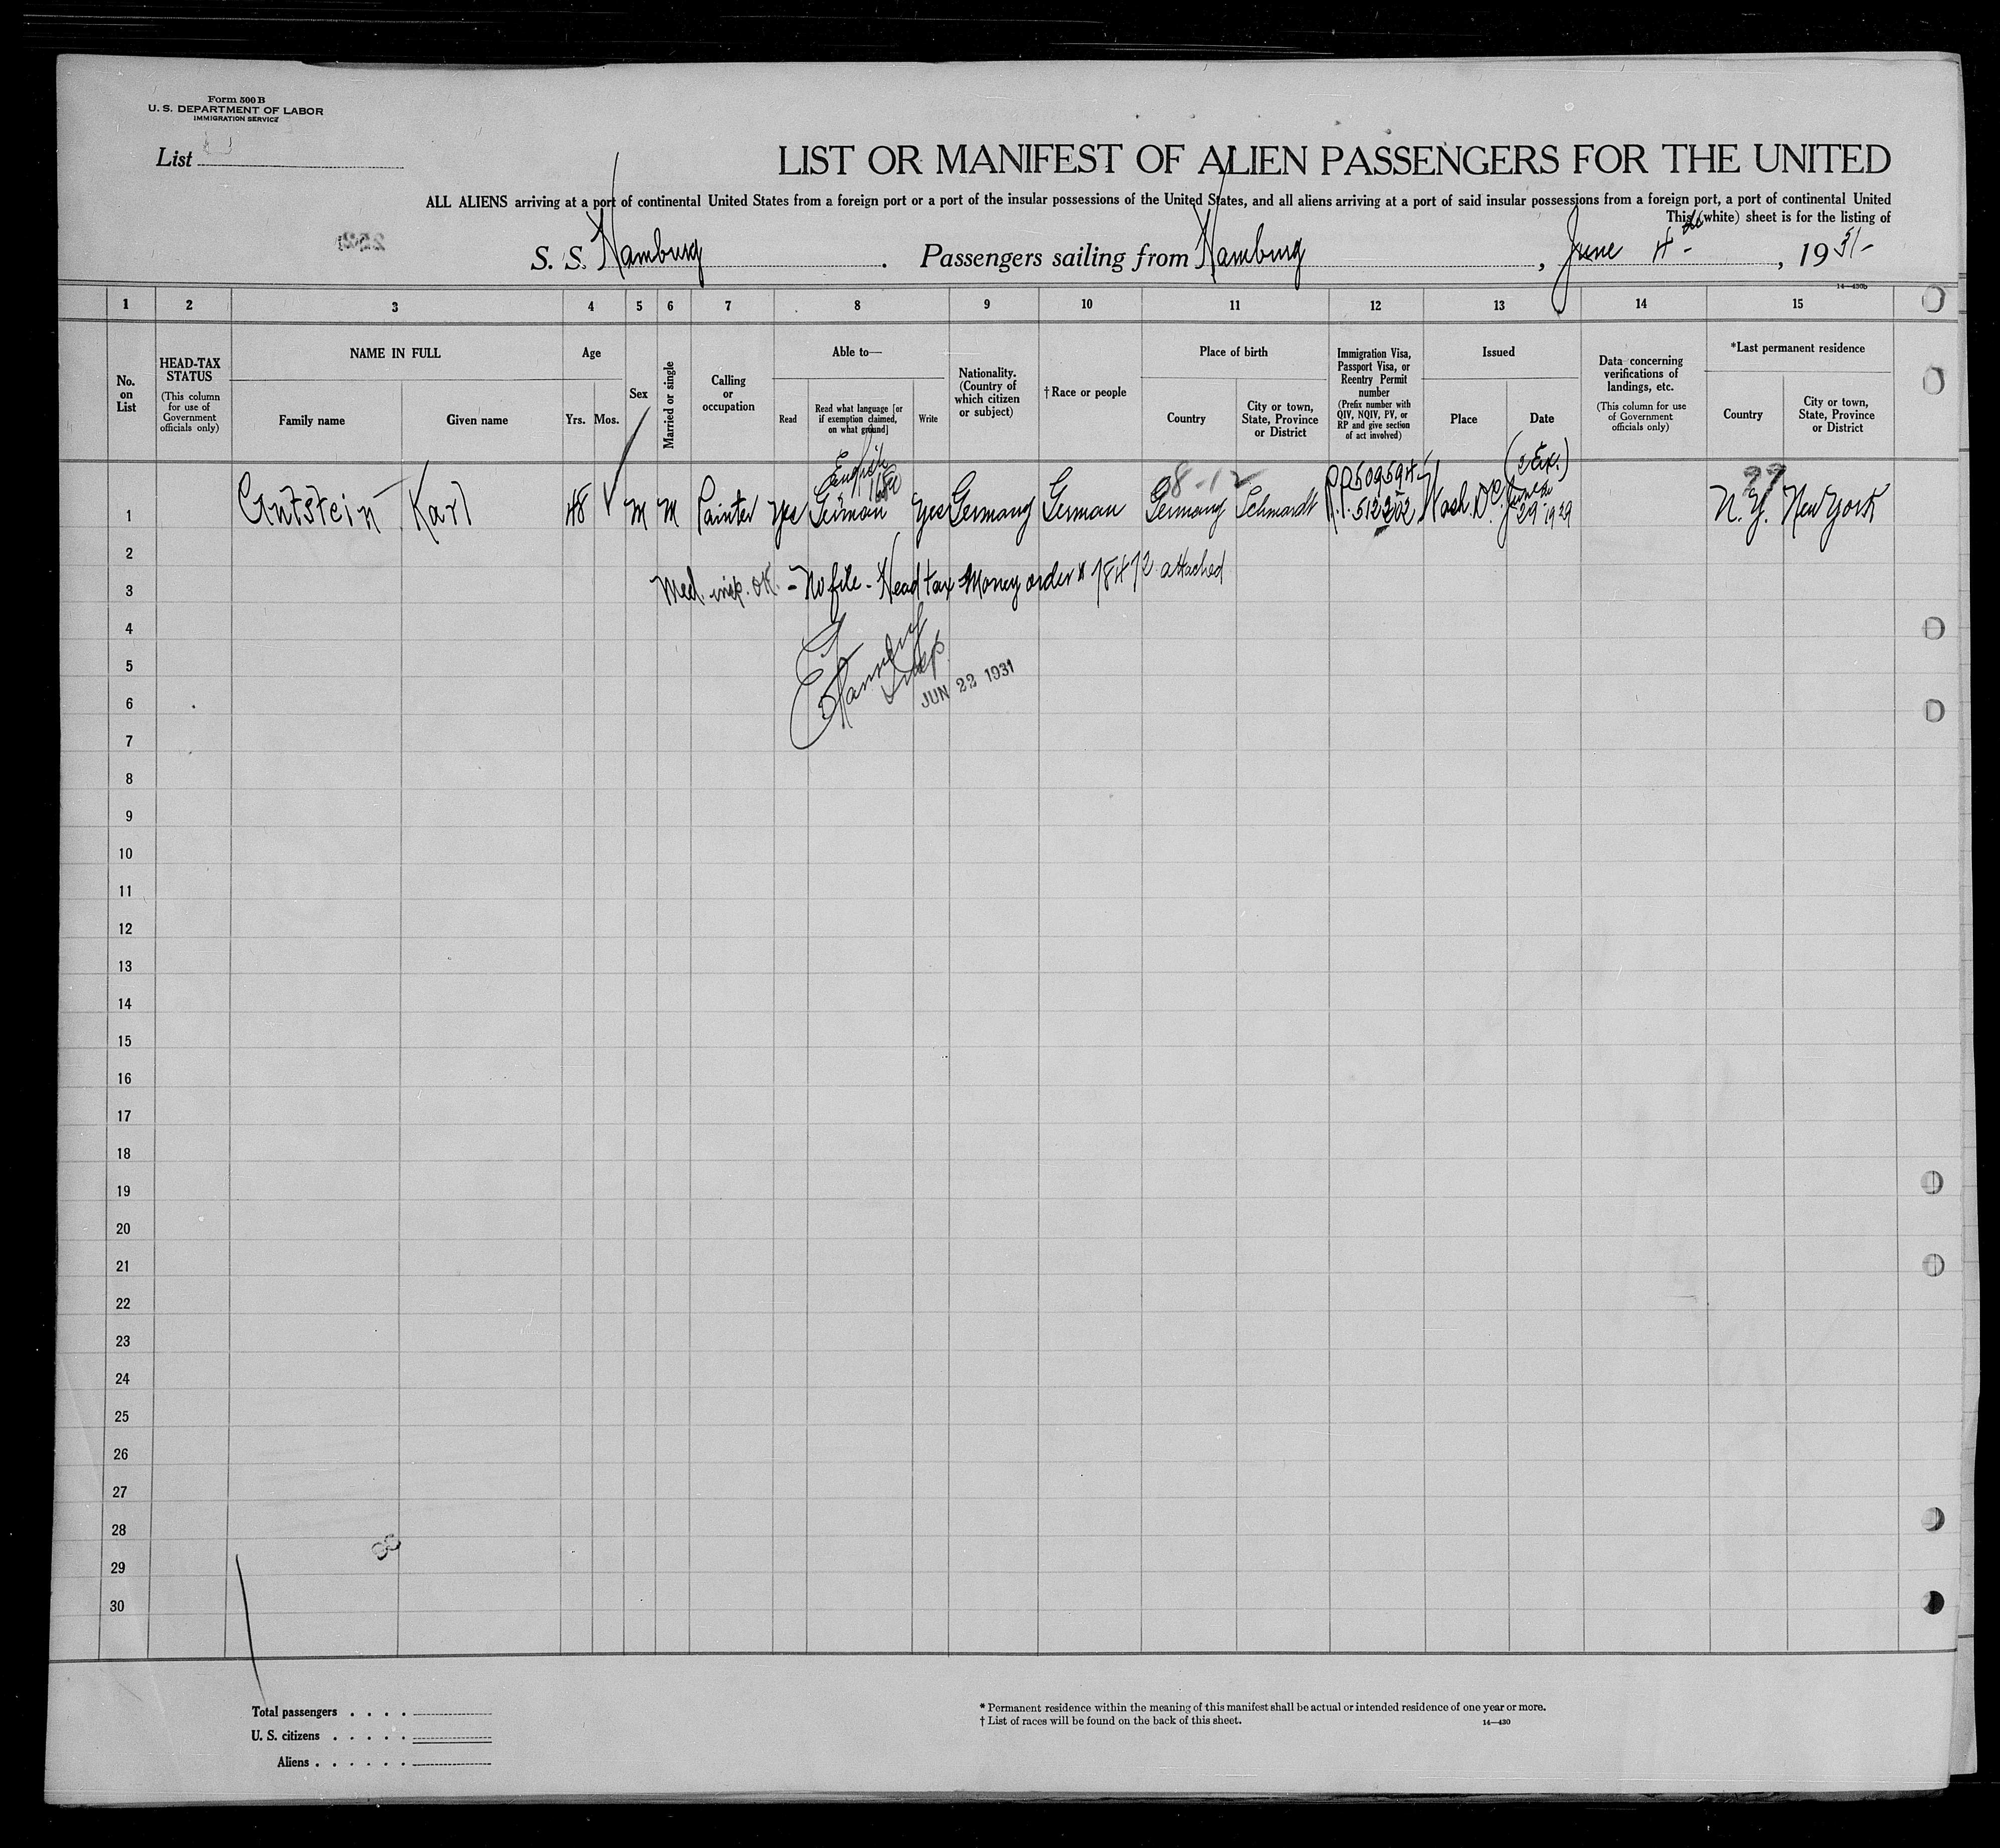 Form 500 B
U. S. DEPARTMENT OF LABOR
IMMIGRATION SERVICE
List
LIST OR MANIFEST OF ALIEN PASSENGERS FOR THE UNITED
ALL ALIENS arriving at a port of continental United States from a foreign port or a port of the insular possessions of the United States, and all aliens arriving at a port of said insular possessions from a foreign port, a port of continental United
This (white) sheet is for the listing of
S. S. Hamburg. Passengers sailing from Hamburg, June 4th, 1931
14—430b
1 2 3 4 5 6 7 8 9 10 11 12 13 14 15
No. on List
HEAD-TAX STATUS
(This column for use of Government officials only)
NAME IN FULL
Family name
Given name
Age
Yrs. Mos.
Sex
Married or single
Calling or occupation
Able to—
Read
Read what language [or if exemption claimed, on what ground]
Write
Nationality. (Country of which citizen or subject)
† Race or people
Place of birth
Country
City or town, State, Province or District
Immigration Visa, Passport Visa, or Reentry Permit number
(Prefix number with QIV, NQIV, PV, or RP and give section of act involved)
Issued
Place
Date
Data concerning verifications of landings, etc.
(This column for use of Government officials only)
*Last permanent residence
Country
City or town, State, Province or District
English (2 Ex.)
8-12
1 Gutstein Karl 48 M M Painter yes German yes Germany German Germany Schmardt R.P. 512302 Wash. D.C. June 29 1929 N.Y. New York
2
Med. insp. OK. - No file - Head tax Money order # 78472 attached
3
4
5
Insp.
JUN 22 1931
6
7
8
9
10
11
12
13
14
15
16
17
18
19
20
21
22
23
24
25
26
27
28
29
30
Total passengers . . . .
U. S. citizens . . . . .
Aliens . . . . . .
* Permanent residence within the meaning of this manifest shall be actual or intended residence of one year or more.
† List of races will be found on the back of this sheet.
14—430